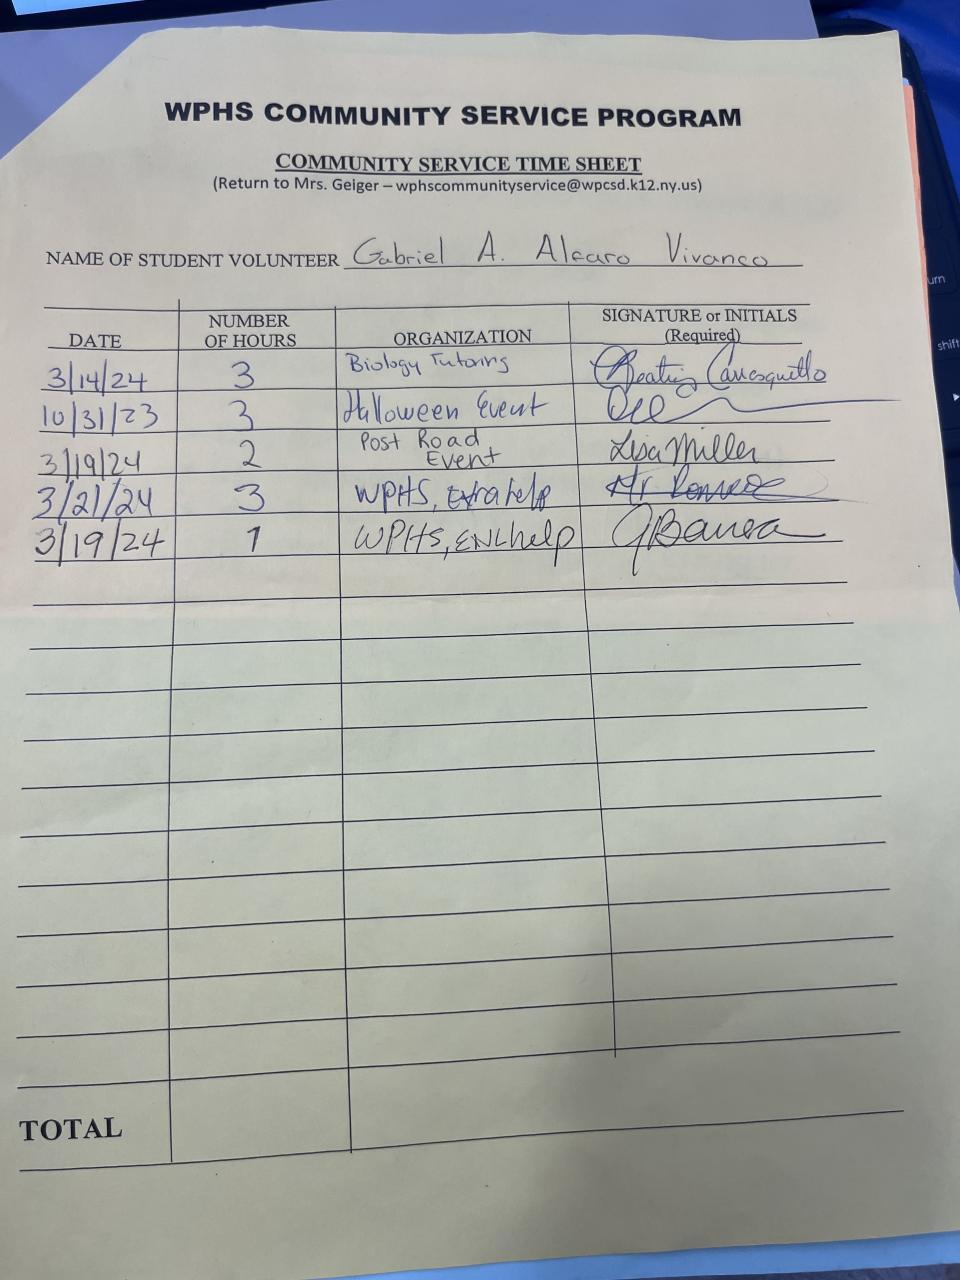 WPHS COMMUNITY SERVICE PROGRAM
COMMUNITY SERVICE TIME SHEET
(Return to Mrs. Geiger – wphscommunityservice@wpcsd.k12.ny.us)
NAME OF STUDENT VOLUNTEER Gabriel A. Alfaro Vivanco
DATE NUMBER OF HOURS ORGANIZATION SIGNATURE or INITIALS (Required)
3/14/24 3 Biology Tutoring Beatriz
10/31/23 3 Halloween Event
3/19/24 2 Post Road Event Lisa Miller
3/21/24 3 WPHS, Extra help Mr
3/19/24 1 WPHS, ENL help
TOTAL
urn
shift